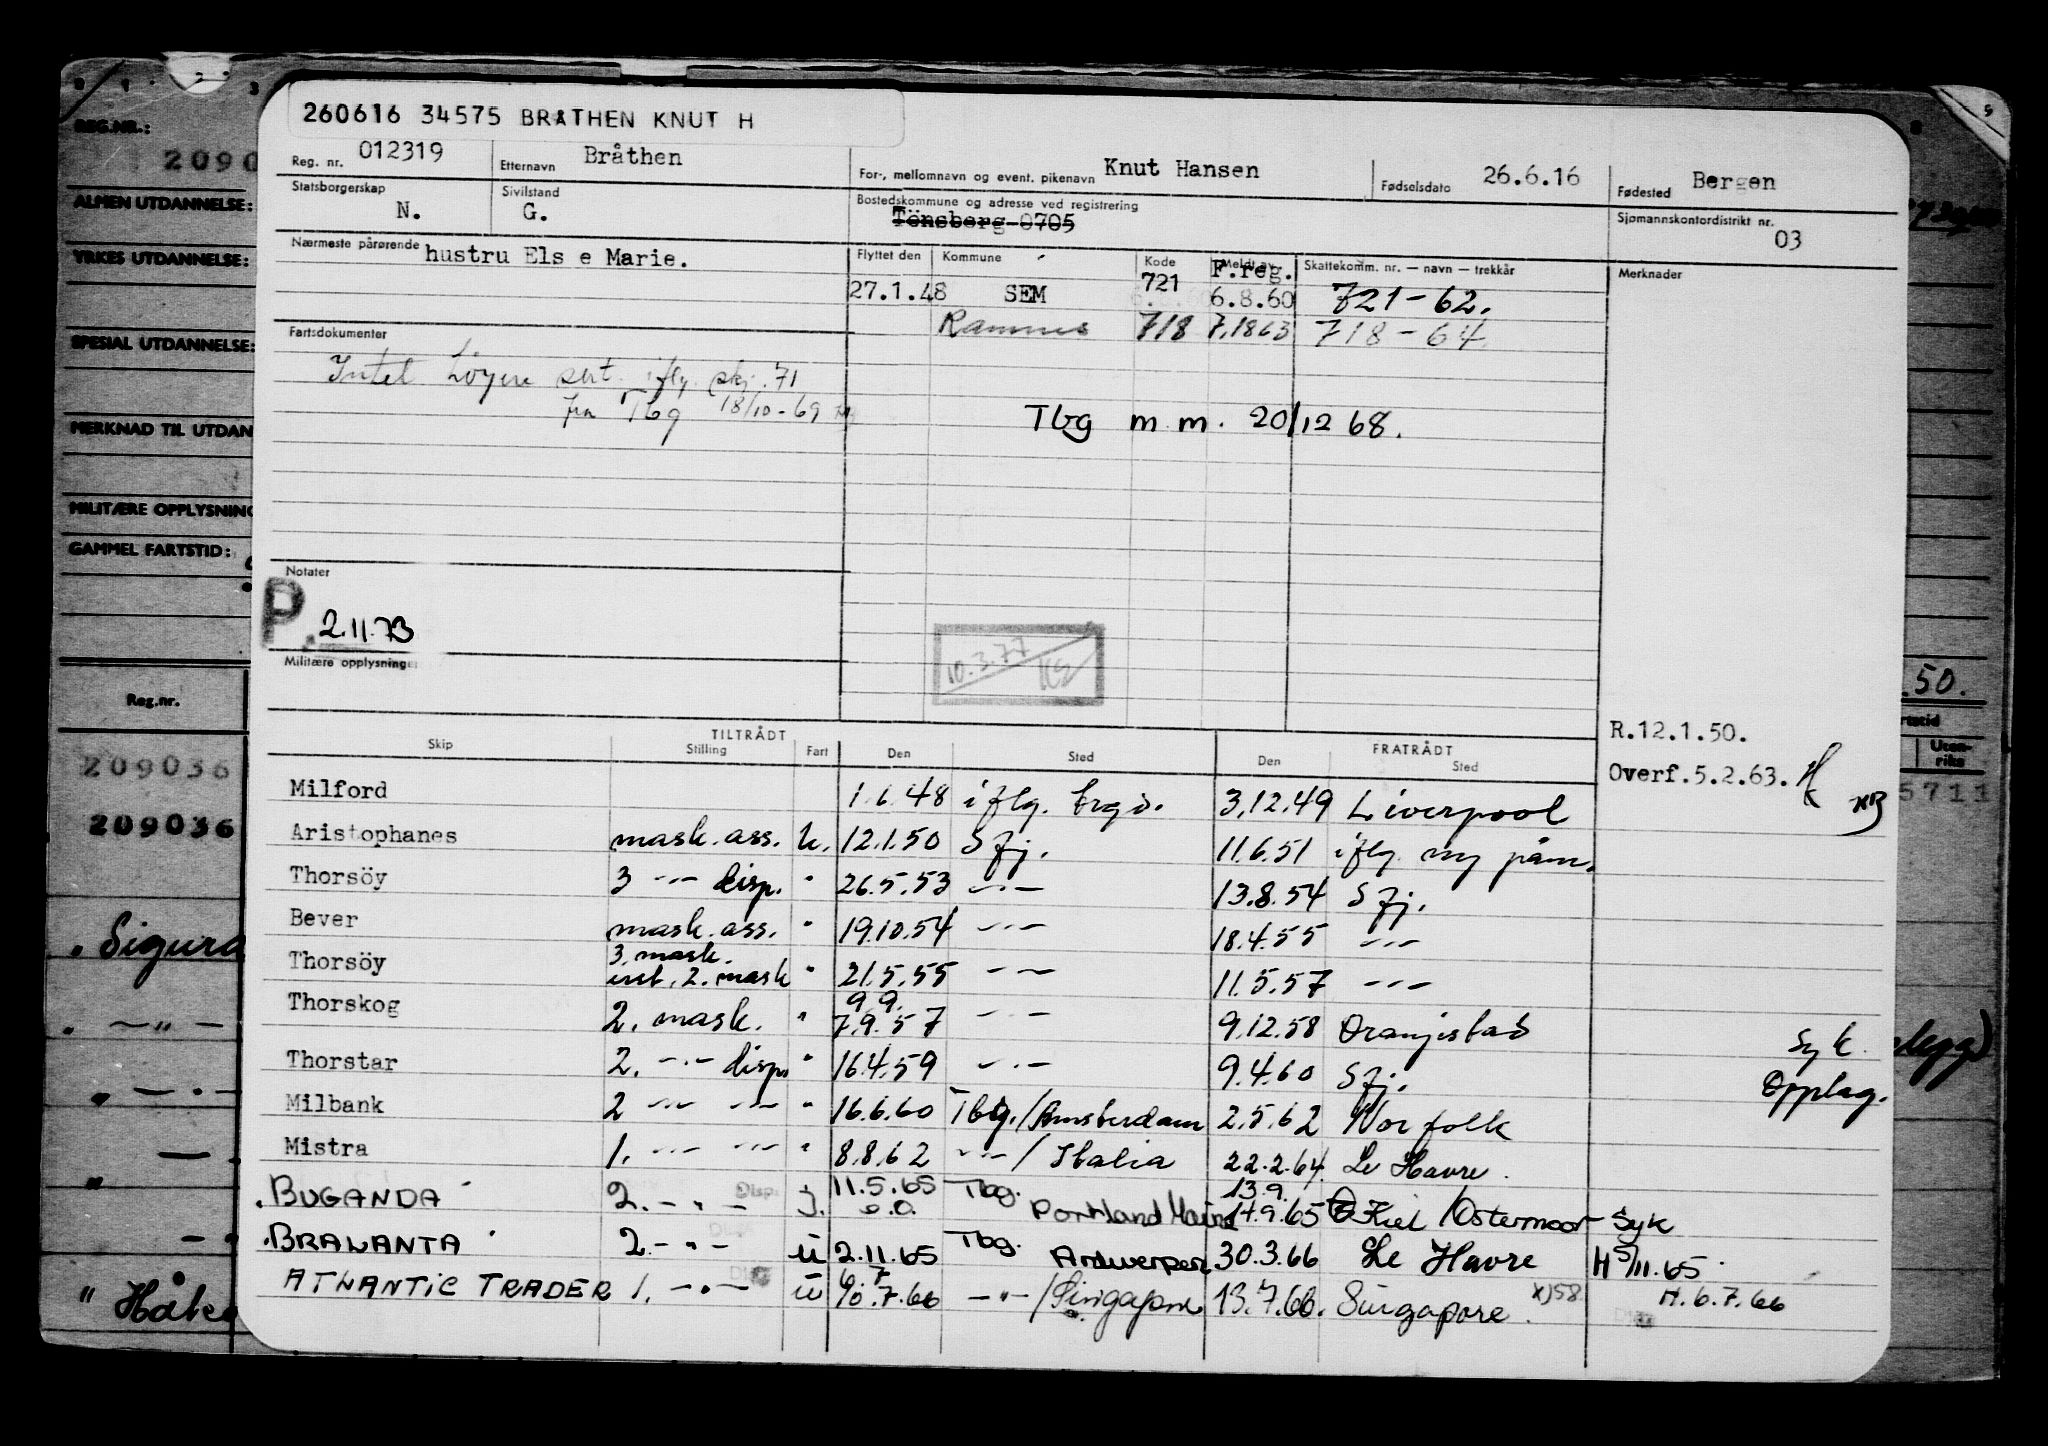 260616 34575 BRÅTHEN KNUT H
Reg. nr. 012319 Etternavn Bråthen For-, mellomnavn og event. pikenavn Knut Hansen Fødselsdato 26.6.16 Fødested Bergen
Statsborgerskap N. Sivilstand G. Bostedskommune og adresse ved registrering Tönsberg 0705 Sjømannskontordistrikt nr. 03
Nærmeste pårørende hustru Els e Marie.
Flyttet den Kommune Kode Meldt av F.reg. Skattekomm. nr. — navn — trekkår Merknader
27.1.48 SEM 721 6.8.60 721-62.
Ramnes 718 7.1863 718-64.
Fartsdokumenter
sert. iflg. skj. 71
fra Tbg 18/10-69
Tbg m m. 20/12 68.
Notater
P. 2.11.73
10.3.77
Militære opplysninge
R.12.1.50.
Overf.5.2.63.
TILTRÅDT FRATRÅDT
Skip Stilling Fart Den Sted Den Sted
Milford 1.6.48 iflg. 3.12.49 Liverpool
Aristophanes mask. ass. u. 12.1.50 Sfj. 11.6.51 iflg. ny påm.
Thorsöy 3 -"- disp. " 26.5.53 -"- 13.8.54 Sfj.
Bever mask. ass. " 19.10.54 -"- 18.4.55 -"-
Thorsöy 3. mask. 2. mask " 21.5.55 -"- 11.5.57 -"-
Thorskog 2. mask. " 9.9. 7.9.57 -"- 9.12.58 Oranjestad Syk.
Thorstar 2. -"- disp. " 16.4.59 -"- 9.4.60 Sfj. Opplag.
Milbank 2 -"- -"- " 16.6.60 Tbg./Amsterdam 2.5.62 Norfolk
Mistra 1. -"- -"- " 8.8.62 -"- / Italia 22.2.64 Le Havre.
BUGANDA 2. -"- Disp. 11.5.65 Tbg. Portland 13.9. 14.9.65 Kiel/Ostermoor Syk
BRALANTA 2. -"- u 2.11.65 Tbg. Antwerpen 30.3.66 Le Havre H 5/11.65
ATLANTIC TRADER 1. -"- u 7.66 -"- /Singapore 13.7.66. Singapore. x)58 H. 6.7.66
REG.NR.:
2090
ALMEN UTDANNELSE:
YRKES UTDANNELSE:
SPESIAL UTDANNELSE:
MERKNAD TIL UTDAN
MILITÆRE OPPLYSNING
GAMMEL FARTSTID:
Reg.nr.
209036
209036
Sigurd
" Håk
.50.
rtstid
Uten-
riks
5711